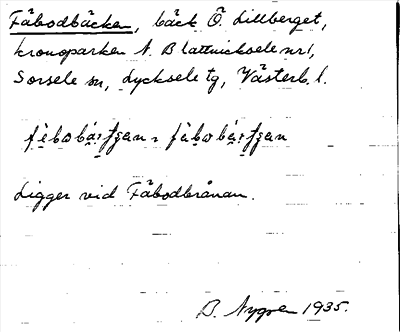 Fäbodbäcken, bäck Ö. Lillberget,
kronoparken N. Blattnicksele nr 1,
Sorsele sn, Lycksele tg, Västerb. l.
Ligger vid Fäbodbrånan.
B. Nygren 1935.